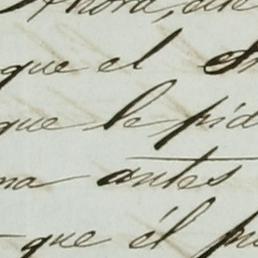 Ahora,
que el
que le pid
ma antes
que él